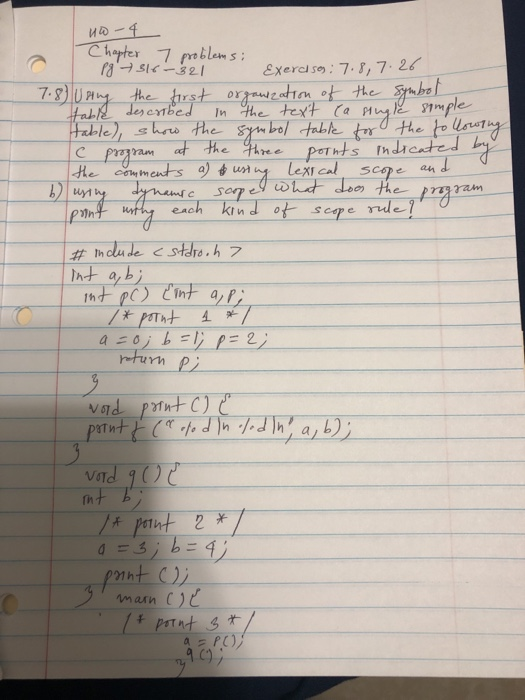 HW - 4
Chapter 7 problems:
Pg → 316 - 321 Exercises: 7.8, 7.26
7.8) Using the first organization of the symbol
table described in the text (a single simple
table), show the symbol table for the following
C program at the three points indicated by
the comments a) using lexical scope and
b) using dynamic scope. What does the program
print using each kind of scope rule?
# include < stdio.h >
Int a,b;
int p() {int a,p;
/* point 1 */
a = 0; b = 1; p = 2;
return p;
}
void print () {
printf ("%d\n%d\n", a, b);
}
void q () {
int b;
/* point 2 */
a = 3; b = 4;
print ();
} main () {
/* point 3 */
a = p();
q ();
}